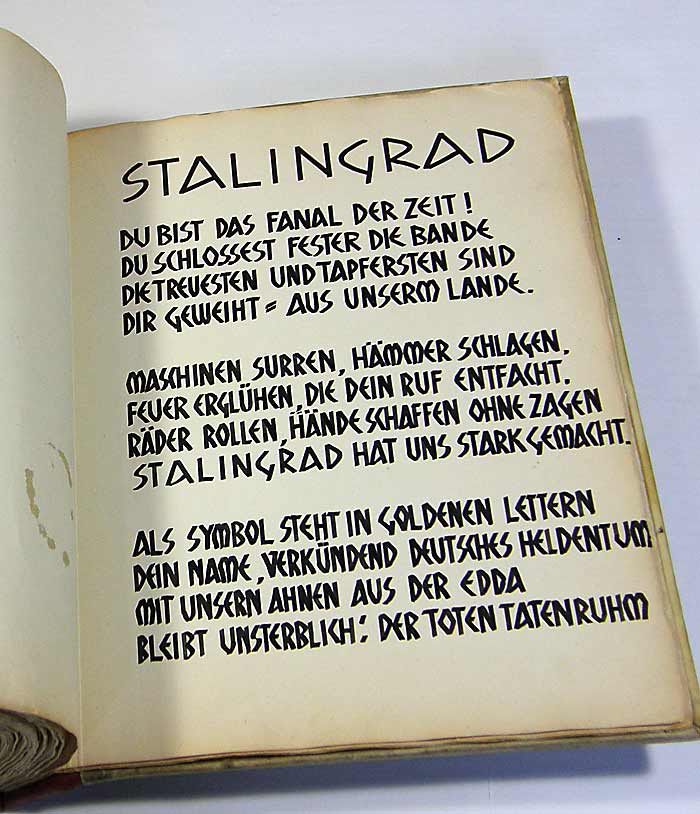 STALINGRAD
DU BIST DAS FANAL DER ZEIT!
DU SCHLOSSEST FESTER DIE BANDE
DIE TREUESTEN UND TAPFERSTEN SIND
DIR GEWEIHT = AUS UNSERM LANDE.
MASCHINEN SURREN, HÄMMER SCHLAGEN,
FEUER ERGLÜHEN, DIE DEIN RUF ENTFACHT,
RÄDER ROLLEN, HÄNDE SCHAFFEN OHNE ZAGEN
STALINGRAD HAT UNS STARK GEMACHT.
ALS SYMBOL STEHT IN GOLDENEN LETTERN
DEIN NAME, VERKÜNDEND DEUTSCHES HELDENTUM
MIT UNSERN AHNEN AUS DER EDDA
BLEIBT UNSTERBLICH: DER TOTEN TATENRUHM